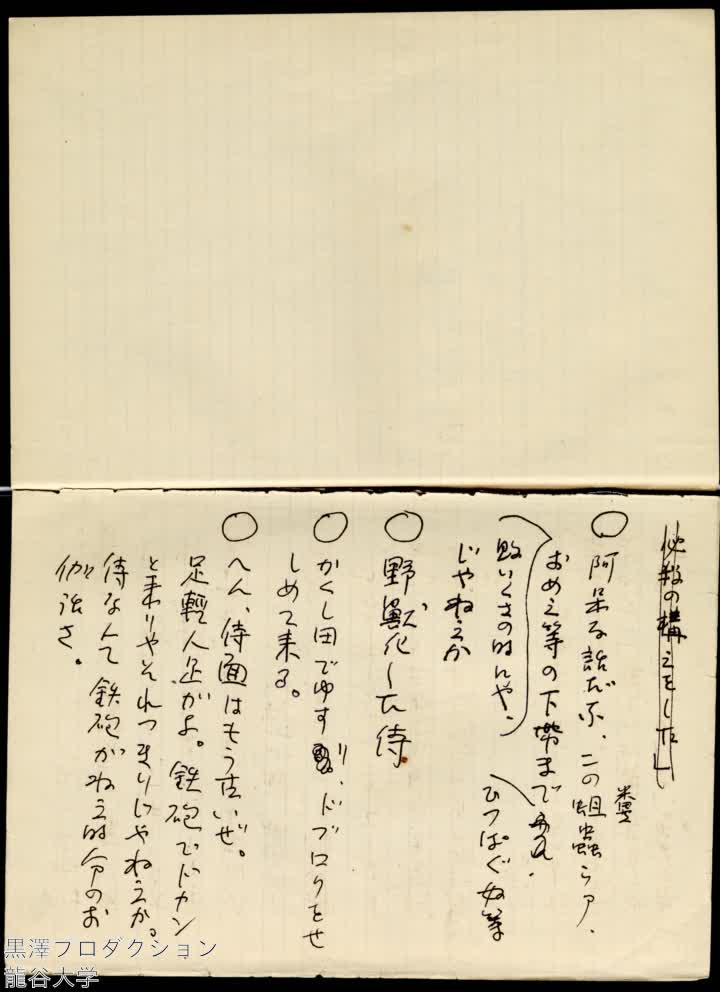 必殺の構えをした
○阿呆な話だな、この蛆蟲らア、
おめえ等の下帯まで
ひっぱぐ奴等
敗いくさの時んや、
じやねえか
○野獣化した侍
○かくし田でゆすり、ドブロクをせ
しめて来る。
○へん、侍面はもう古いぜ。
足輕人足がよ。鉄砲でドカン
と来りやそれつきりじやねえか。
侍なんて鉄砲がねえ時分のお
伽話さ。
黒澤プロダクション
龍谷大学